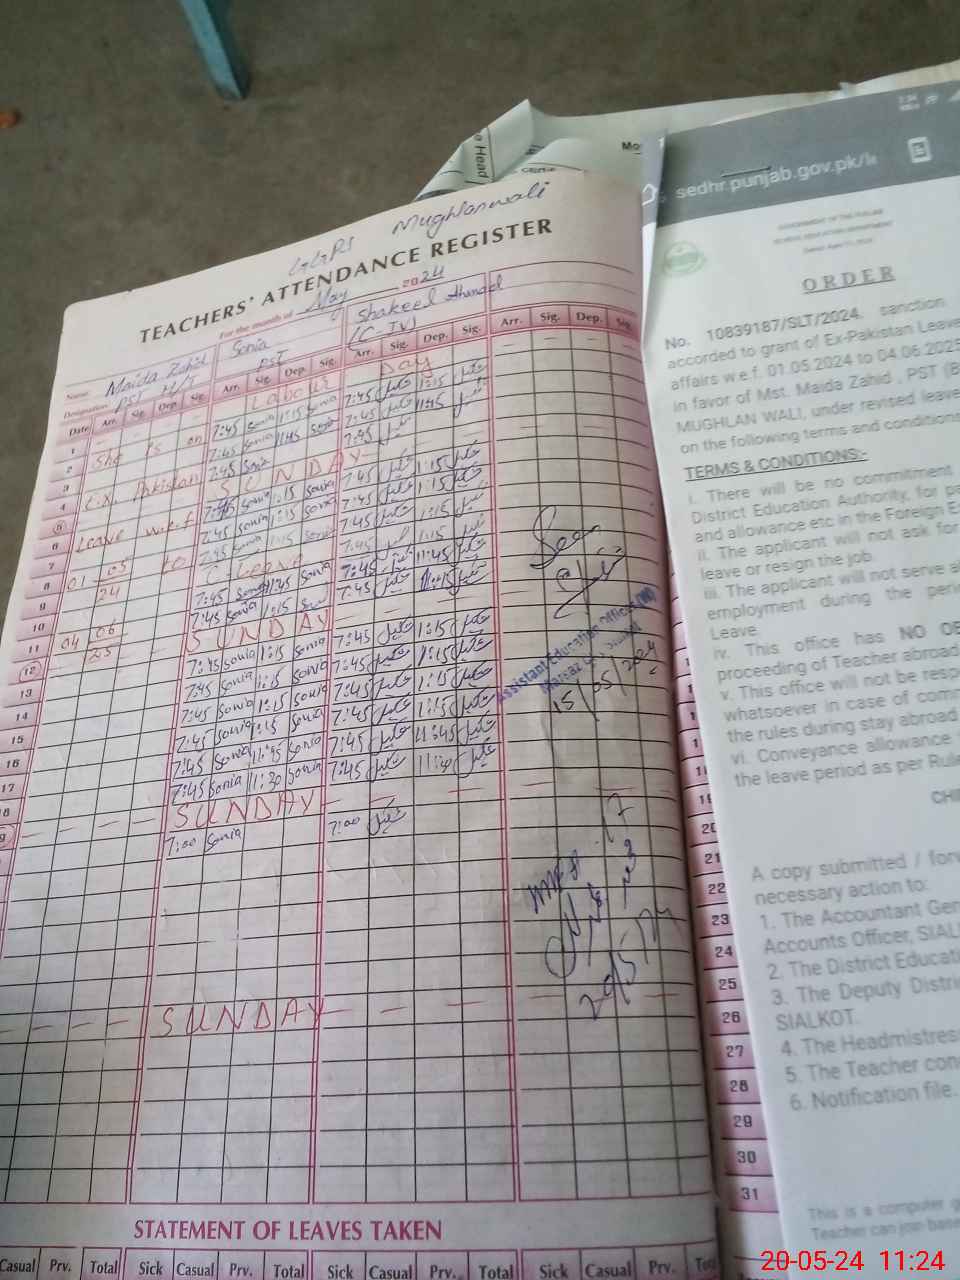 GGPS Mughlanwali
TEACHERS' ATTENDANCE REGISTER
For the month of May 2024
Name: Maida Zahid Sonia Shakeel Ahmad
Designation PST H/T PST (C-IV)
Date Arr. Sig. Dep. Sig. Arr. Sig. Dep. Sig. Arr. Sig. Dep. Sig. Arr. Sig. Dep. Sig.
1 Labour Day
2 She is on 7:45 Sonia 1:15 Sonia 7:45 شکیل 1:15 شکیل
3 7:45 Sonia 11:45 Sonia 7:45 شکیل 11:45 شکیل
4 Ex. Pakistan 7:45 Sonia 7:45 شکیل
5 SUNDAY
6 Leave w.e.f 7:45 Sonia 1:15 Sonia 7:45 شکیل 1:15 شکیل
7 7:45 Sonia 1:15 Sonia 7:45 شکیل 1:15 شکیل
8 01 05 24 to 7:45 Sonia 1:15 Sonia 7:45 شکیل 1:15 شکیل
9 C-Leave 7:45 شکیل 1:15 شکیل
10 7:45 Sonia 11:45 Sonia 7:45 شکیل 11:45 شکیل
11 04 06 25 7:45 Sonia 1:15 Sonia 7:45 شکیل 11:15 شکیل
12 SUNDAY
13 7:45 Sonia 1:15 Sonia 7:45 شکیل 1:15 شکیل
14 7:45 Sonia 1:15 Sonia 7:45 شکیل 1:15 شکیل
15 7:45 Sonia 1:15 Sonia 7:45 شکیل 1:15 شکیل
16 7:45 Sonia 1:15 Sonia 7:45 شکیل 1:15 شکیل
17 7:45 Sonia 11:45 Sonia 7:45 شکیل 11:45 شکیل
18 7:45 Sonia 11:30 Sonia 7:45 شکیل شکیل
SUNDAY
7:00 Sonia 7:00 شکیل
SUNDAY
Seen
Assistant Education Officer (W)
15/05/2024
20/5/24
STATEMENT OF LEAVES TAKEN
Casual Prv. Total Sick Casual Prv. Total Sick Casual Prv. Total Sick Casual Prv.
19
20
21
22
23
24
25
26
27
28
29
30
31
Head
sedhr.punjab.gov.pk/le
ORDER
No. 10839187/SLT/2024. sanction
accorded to grant of Ex-Pakistan Leave
affairs w.e.f. 01.05.2024 to 04.06.2025
in favor of Mst. Maida Zahid , PST (B
MUGHLAN WALI, under revised leave
on the following terms and conditions
TERMS & CONDITIONS:-
i. There will be no commitment
District Education Authority, for pa
and allowance etc in the Foreign E
ii. The applicant will not ask for
leave or resign the job.
iii. The applicant will not serve a
employment during the peri
Leave.
iv. This office has NO OB
proceeding of Teacher abroad
v. This office will not be resp
whatsoever in case of com
the rules during stay abroad
vi. Conveyance allowance
the leave period as per Rule
CHI
A copy submitted / forw
necessary action to:
1. The Accountant Gen
Accounts Officer, SIAL
2. The District Educati
3. The Deputy Distri
SIALKOT.
4. The Headmistress
5. The Teacher con
6. Notification file.
This is a computer g
Teacher can join base
20-05-24 11:24